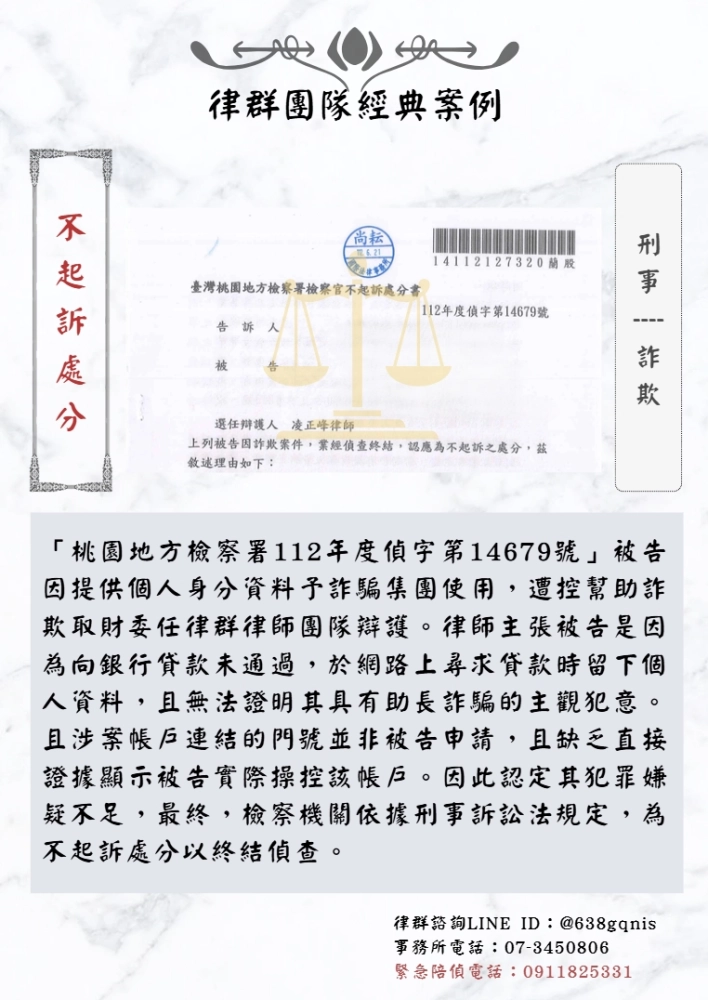 律群團隊經典案例
不起訴處分
刑事----詐欺
尚耘
14112127320蘭股
臺灣桃園地方檢察署檢察官不起訴處分書
112年度偵字第14679號
告訴人
被告
選任辯護人 凌正峰律師
上列被告因詐欺案件,業經偵查終結,認應為不起訴之處分,茲
敘述理由如下:
「桃園地方檢察署112年度偵字第14679號」被告
因提供個人身分資料予詐騙集團使用,遭控幫助詐
欺取財委任律群律師團隊辯護。律師主張被告是因
為向銀行貸款未通過,於網路上尋求貸款時留下個
人資料,且無法證明其具有助長詐騙的主觀犯意。
且涉案帳戶連結的門號並非被告申請,且缺乏直接
證據顯示被告實際操控該帳戶。因此認定其犯罪嫌
疑不足,最終,檢察機關依據刑事訴訟法規定,為
不起訴處分以終結偵查。
律群諮詢LINE ID:@638gqnis
事務所電話:07-3450806
緊急陪偵電話:0911825331